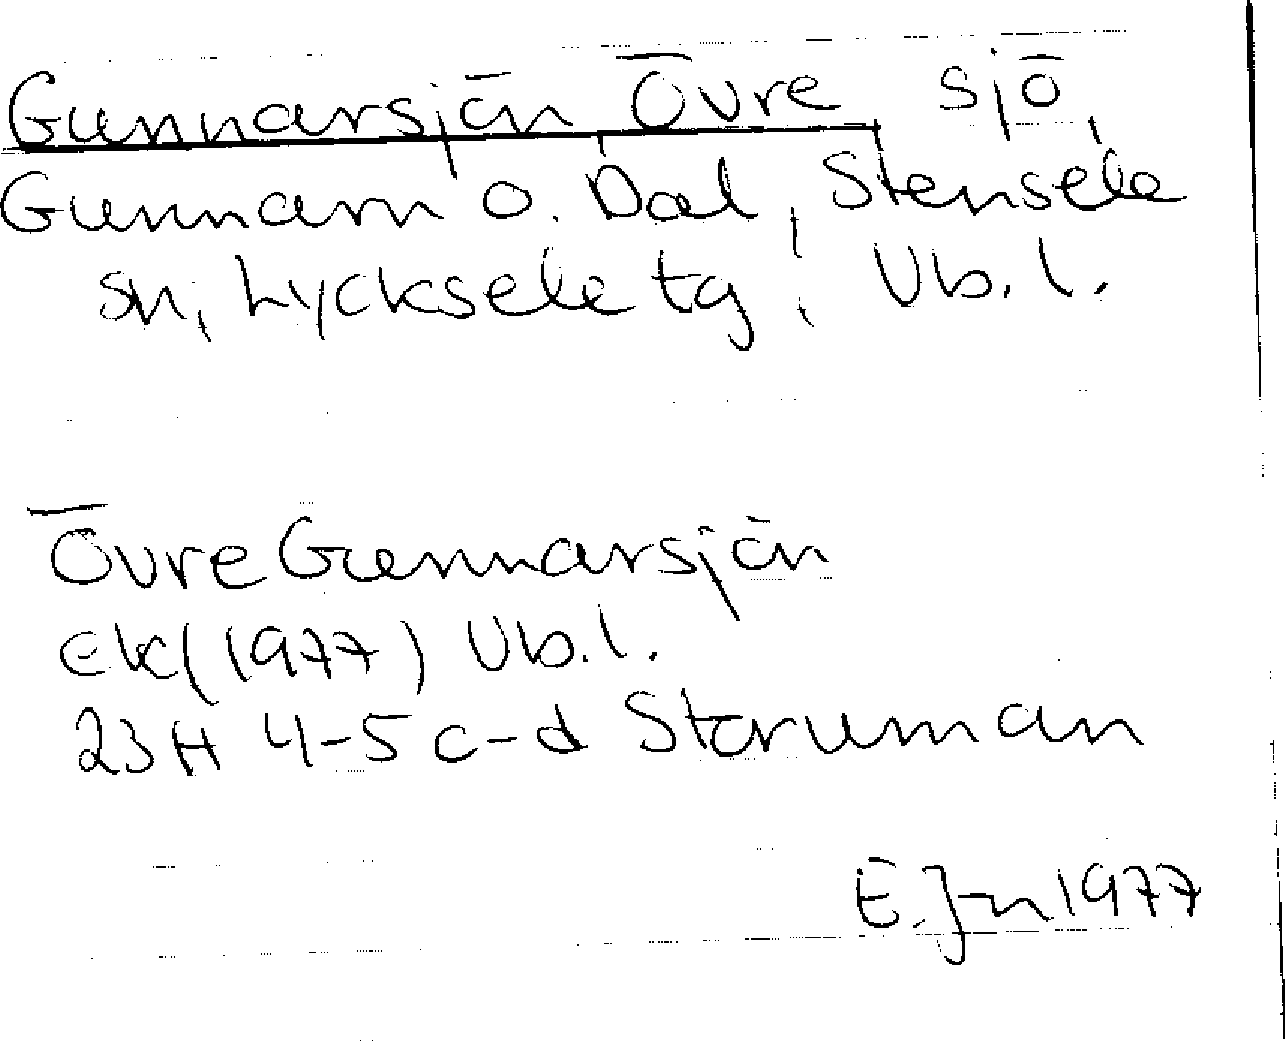 Gunnarsjön Övre, sjö,
Gunnarn o. Dal, Stensele
sn, Lycksele tg, Vb.l.
Övre Gunnarsjön
ek (1977) Vb.l.
23H 4-5 c-d Storuman
E. J-n 1977